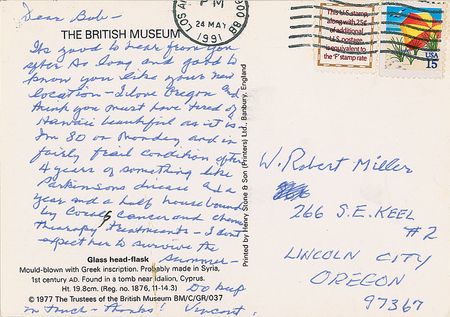 Dear Bob -
THE BRITISH MUSEUM
Its good to hear from you
after so long and good to
know you like your new
location - I love Oregon and
think you must have tired of
Hawaii beautiful as it is.
I'm 80 on Monday and in
fairly frail condition after
4 years of something like
Parkinsons disease and a
year and a half housebound
by Coral's cancer and chemo
therapy treatments - I dont
expect her to survive the
summer -
Glass head-flask
Mould-blown with Greek inscription. Probably made in Syria,
1st century AD. Found in a tomb near Idalion, Cyprus.
Ht. 19.8cm. (Reg. no. 1876, 11-14.3)
© 1977 The Trustees of the British Museum BM/C/GR/037
Do keep
in touch - thanks! Vincent.
Printed by Henry Stone & Son (Printers) Ltd., Banbury, England
LOS AN
PM
24 MAY
1991
900 88
This U.S. stamp,
along with 25¢
of additional
U.S. postage,
is equivalent to
the 'F' stamp rate
USA
15
W. Robert Miller
266 S.E. KEEL
#2
LINCOLN CITY
OREGON
97367